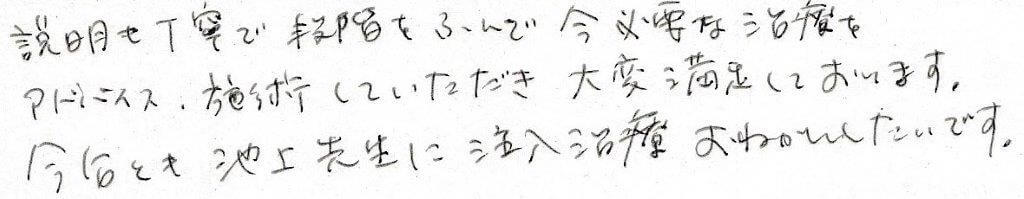 説明も丁寧で段階をふんで今必要な治療を
アドバイス、施術していただき大変満足しております。
今後とも池上先生に注入治療おねがいしたいです。